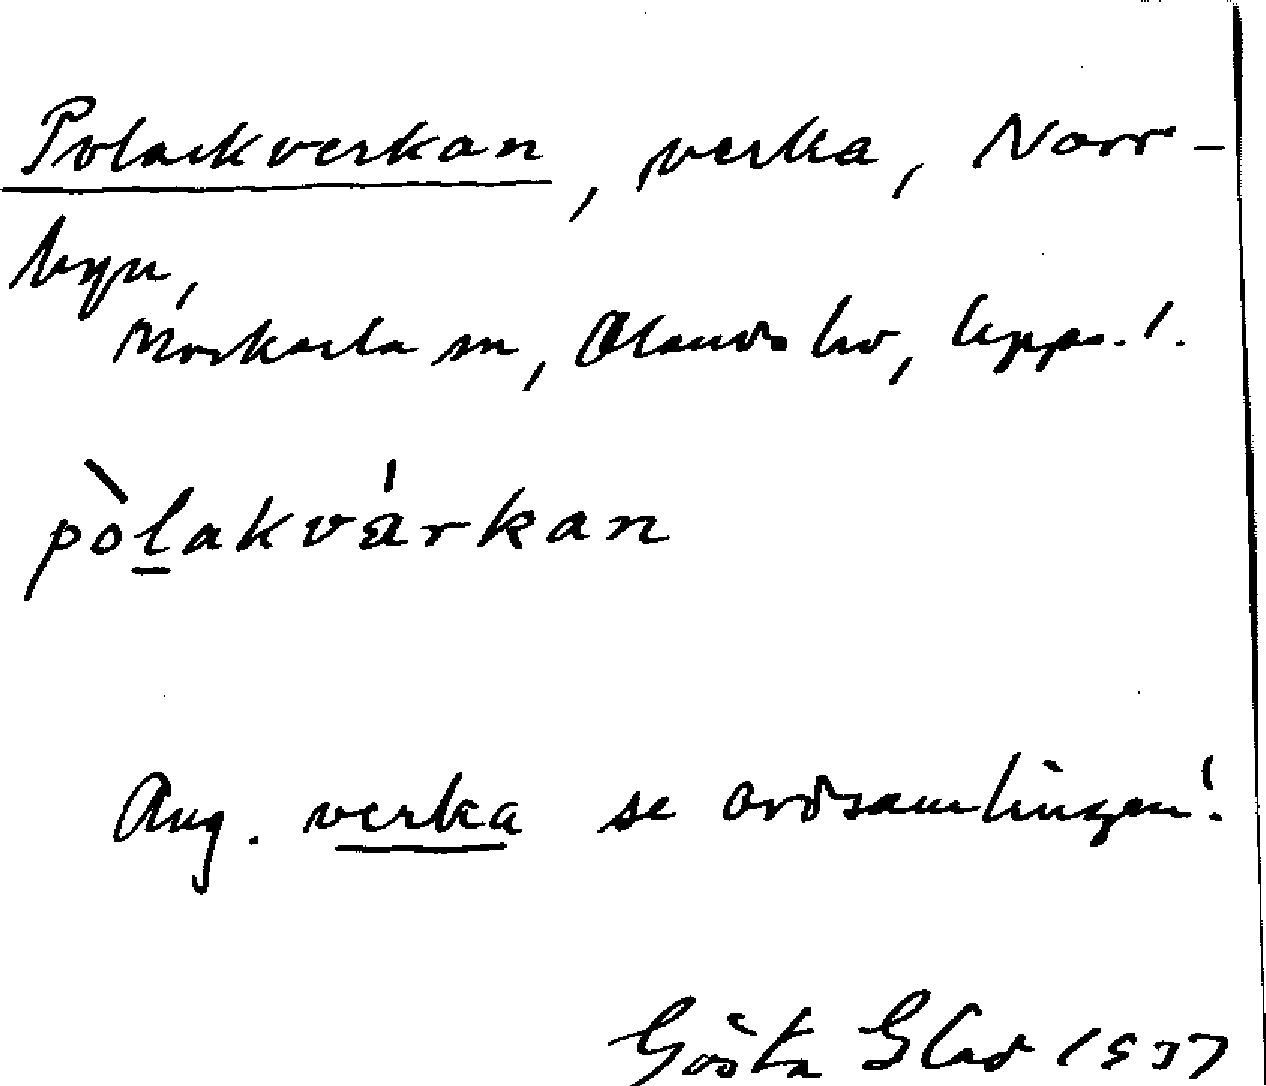 Polackverkan, verka, Norr-
byn,
Morkarla sn, Olands hd, Upps. l.
pòl̠akvàrkan
Ang. verka se ordsamlingen!
Gösta Glad 1937